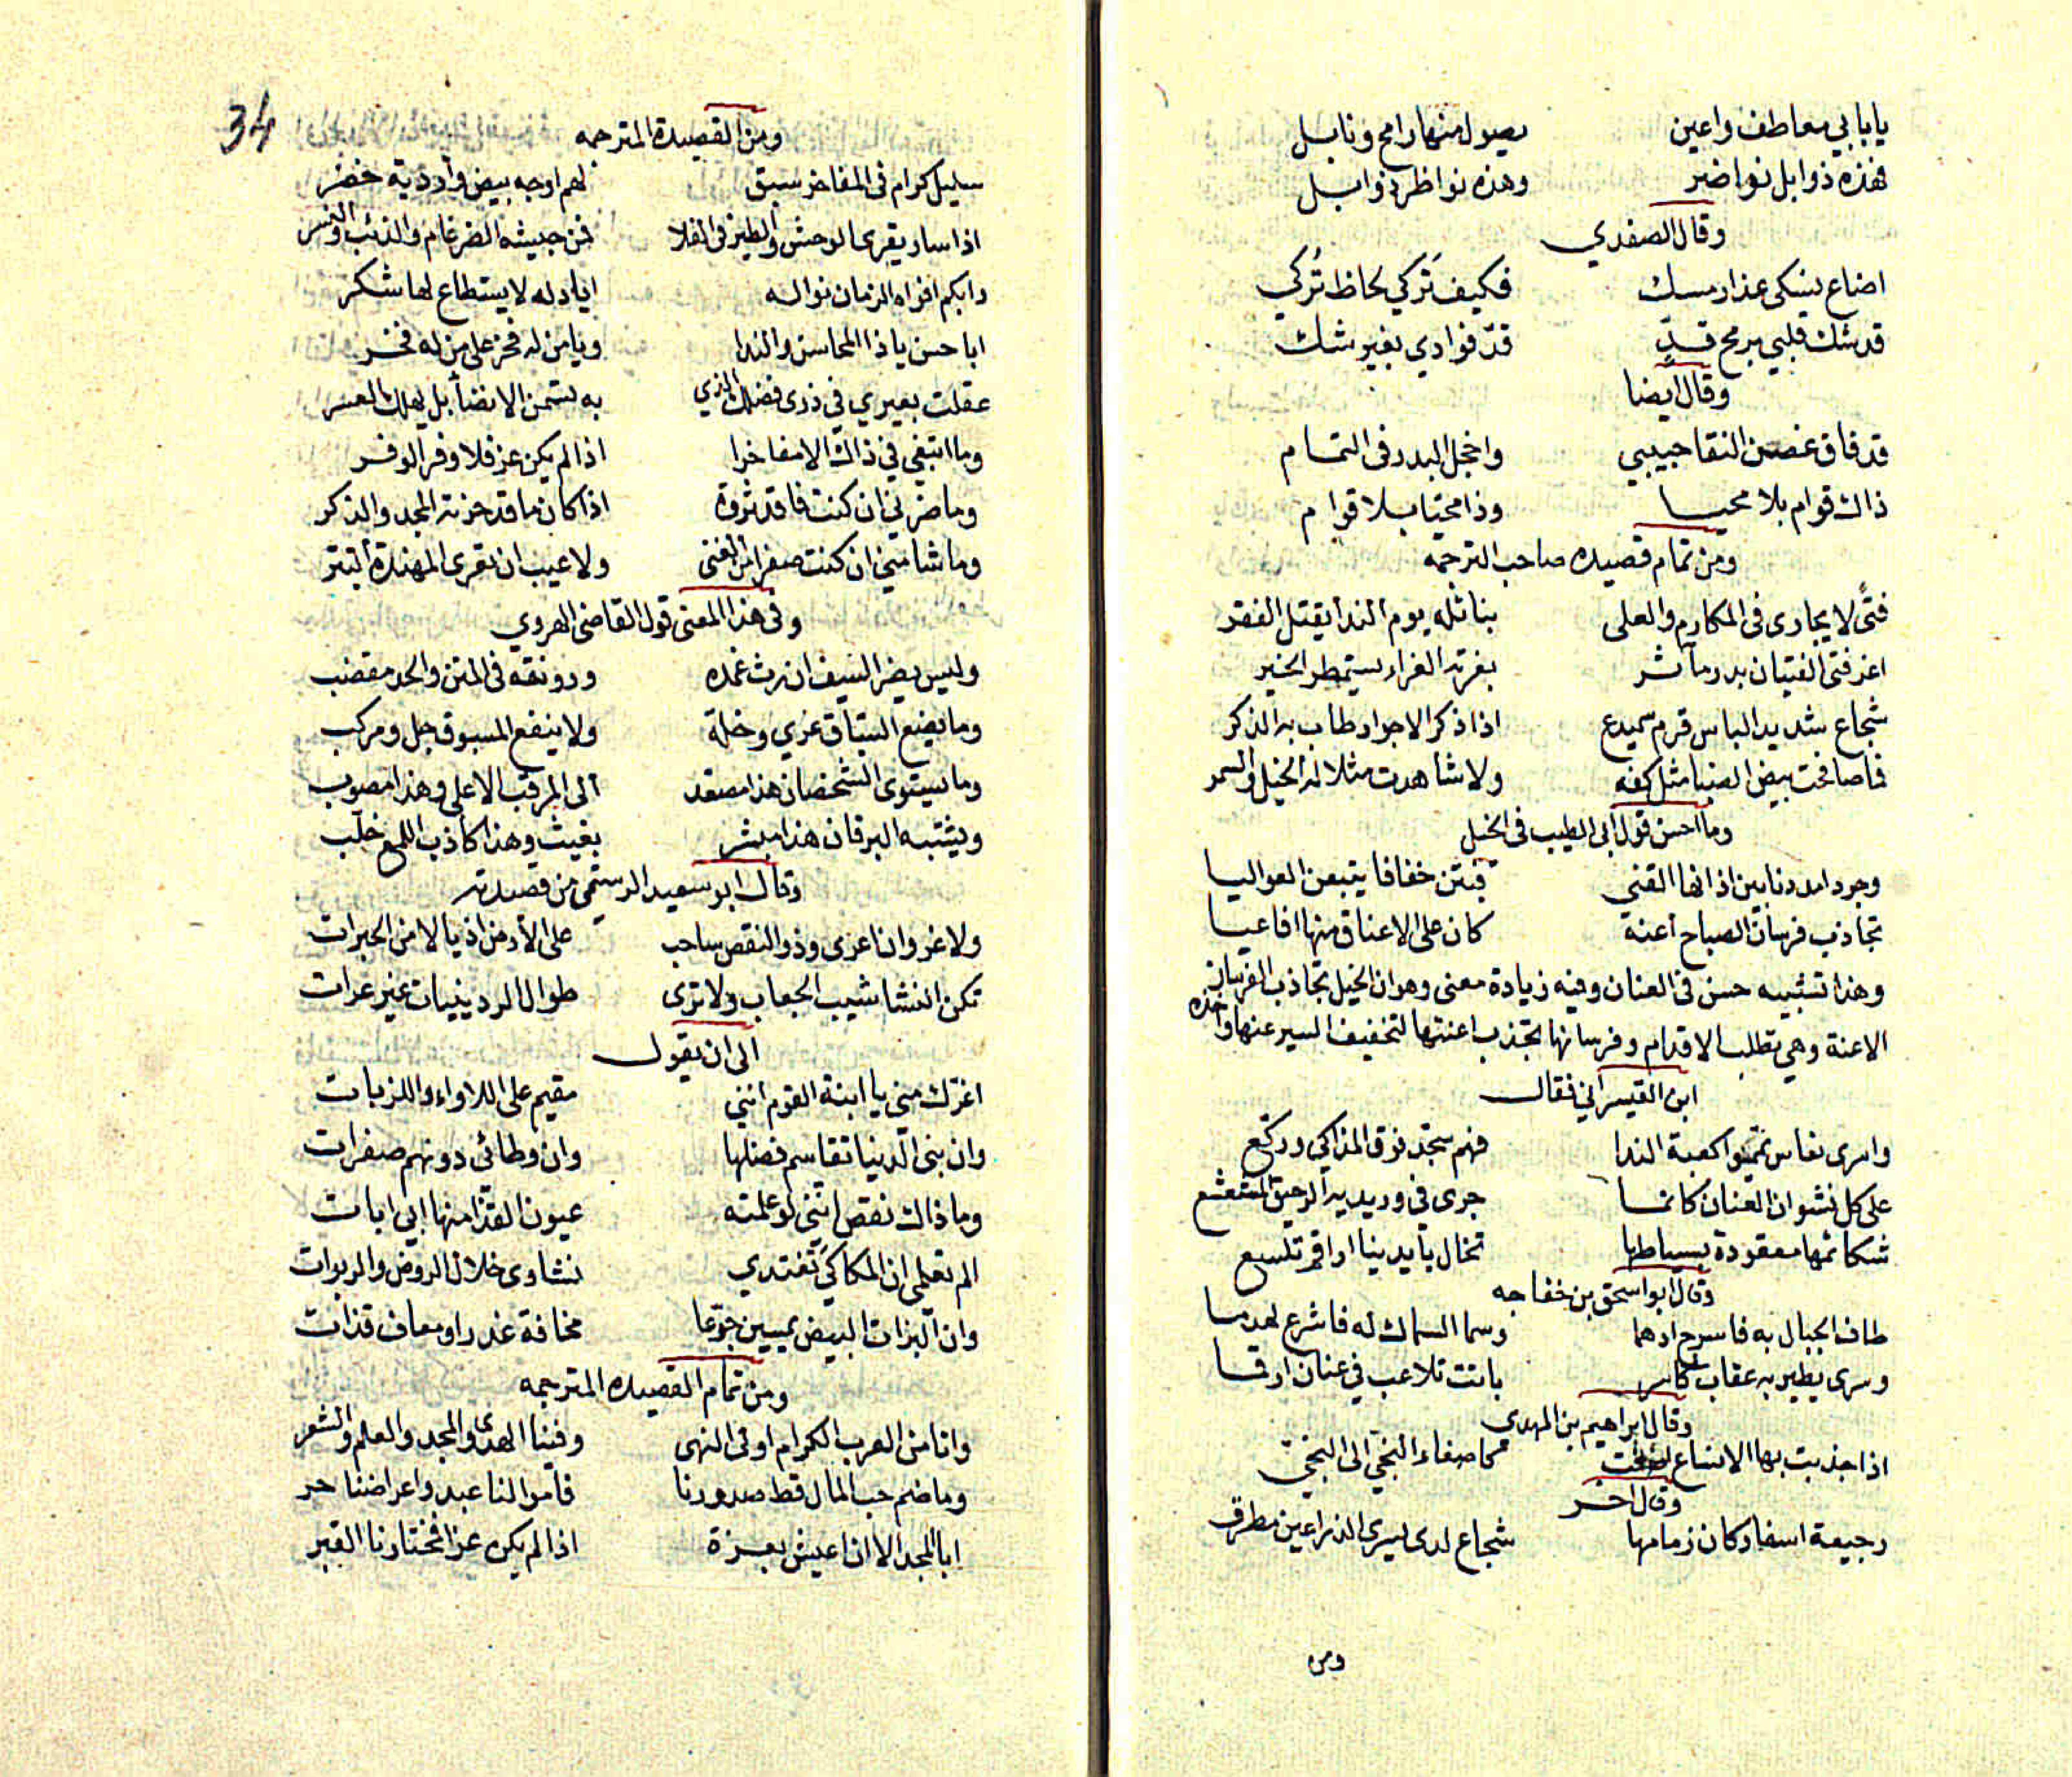 يا بابي معاطف واعين يصول منها رامح ونابل
فهذه ذوابل نواضر وهذه نواظر ذوابل
وقال الصفدي
اضاع نسكى عذار مسك فكيف تَركي لحاظ تُركي
قد شك قلبي برمح قدٍّ قدّ فوادي بغير شك
وقال ايضا
قد فاق غصن النقا حبيبي واخجل البدر فى التمام
ذاك قوام بلا محيا وذا محيا بلا قوام
ومن تمام قصيده صاحب الترجمه
فتًى لا يجارى فى المكارم والعلى بنائله يوم الندا يقتل الفقر
اغر فتى الفتيان بدر مآثر بغرته الغراء يستمطر الخير
شجاع شديد الباس قرم سميدع اذا ذكر الاجواد طاب به الذكر
فما صافحت بيض الضبا مثل كفه ولا شاهدت مثلا له الخيل والسمر
وما احسن قول ابى الطيب فى الخيل
وجردا مددنا بين اذانها القني فبتن خفافا يتبعن العواليا
تجاذب فرسان الصباح اعنة كان على الاعناق منها افاعيا
وهذا تشبيه حسن فى العنان وفيه زيادة معنى وهو ان الخيل تجاذب الفرسان
الاعنة وهي تطلب الاقدام وفرسانها تجذب اعنتها لتخفيف السير عنها واخذه
ابن القيسراني فقال
واسرى نعاس يمموا كعبة الندا فهم سجّد فوق المذاكي وركّع
على كل نشوان العنان كانما جرى في وريديه الرحيق المشعشع
شكائمها معقودة بسياطها تخال بأيدينا اراقم تلسع
وقال ابو اسحق بن خفاجه
طاف الجبال به فاسرج ادهما وسما السماك له فاشرع لهدما
وسرى يطير به عقاب كاسر باتت تلاعب في عنان ارقما
وقال ابراهيم بن المهدي
اذا جذبت بها الانساع كما صغاء النجّي الى النجّي
وقال اخر
رجيعة اسفار كان زمامها شجاع لدى يسرى الذراعين مطرق
ومن
34
ومن القصيدة المترجمه
سليل كرام فى المفاخر سبق لهم اوجه بيض وأردية خضر
اذا سار يقرى الوحش والطير فى الفلا فمن جيشه الضرغام والذئب والنسر
وابكم افواه الزمان نواله اياد له لا يستطاع لها شكر
ابا حسن يا ذا المحاسن والندا ويا من له فخر على من له فخر
عقلت بعيري في ذرى فضلك الذي به تسمن الانضا بل يهلك العسر
وما ابتغي في ذاك الا مفاخرا اذا لم يكن عز فلا وفر الوفر
وما ضرني ان كنت فاقد ثروة اذا كان ما قد حزته المجد والذكر
وما شانني ان كنت صفرا من الغنى ولا عيب ان تعرى المهندة البتر
وفى هذا المعنى قول القاضى الهروي
وليس يضر السيف ان رث غمده ورونقه فى المتن والحد مقضب
وما يضع السبّاق عري وخلة ولا ينفع المسبوق جل ومركب
وما يستوى الشخصان هذا مصعد الى المرقب الاعلى وهذا مصوب
ويشتبه البرقان هذا مبشر بغيث وهذا كاذب اللمع خلّب
وقال ابو سعيد الرستمي من قصيدته
ولا غرو انا عرى وذو النقص ساحب على الارض اذيالا من الحبرات
تكن النشاشيب الجعاب ولا ترى طوال الردينيات غير عرات
الى ان يقول
اغرّك منى يا ابنة القوم انني مقيم على اللاواء واللزبات
وان بنى الدنيا تقاسم فضلها وان وطائى دونهم صفرات
وما ذاك نقص انني لو علمته عيون القذا منها ابي ابات
الم تعلمى ان المكاكيَ تغتدي نشاوى خلال الروض والربوات
وان البزات البيض يمسين جوّعا مخافة غدر او معاف قذات
ومن تمام القصيده المترجمه
وانا من العرب الكرام اوفى النهى وفينا الهدى والمجد والعلم والشعر
وما ضم حب المال قط صدورنا فاموالنا عبد واعراضنا حر
ابا المجد الا ان اعيش بعزة اذا لم يكن عزا فمختارنا القبر